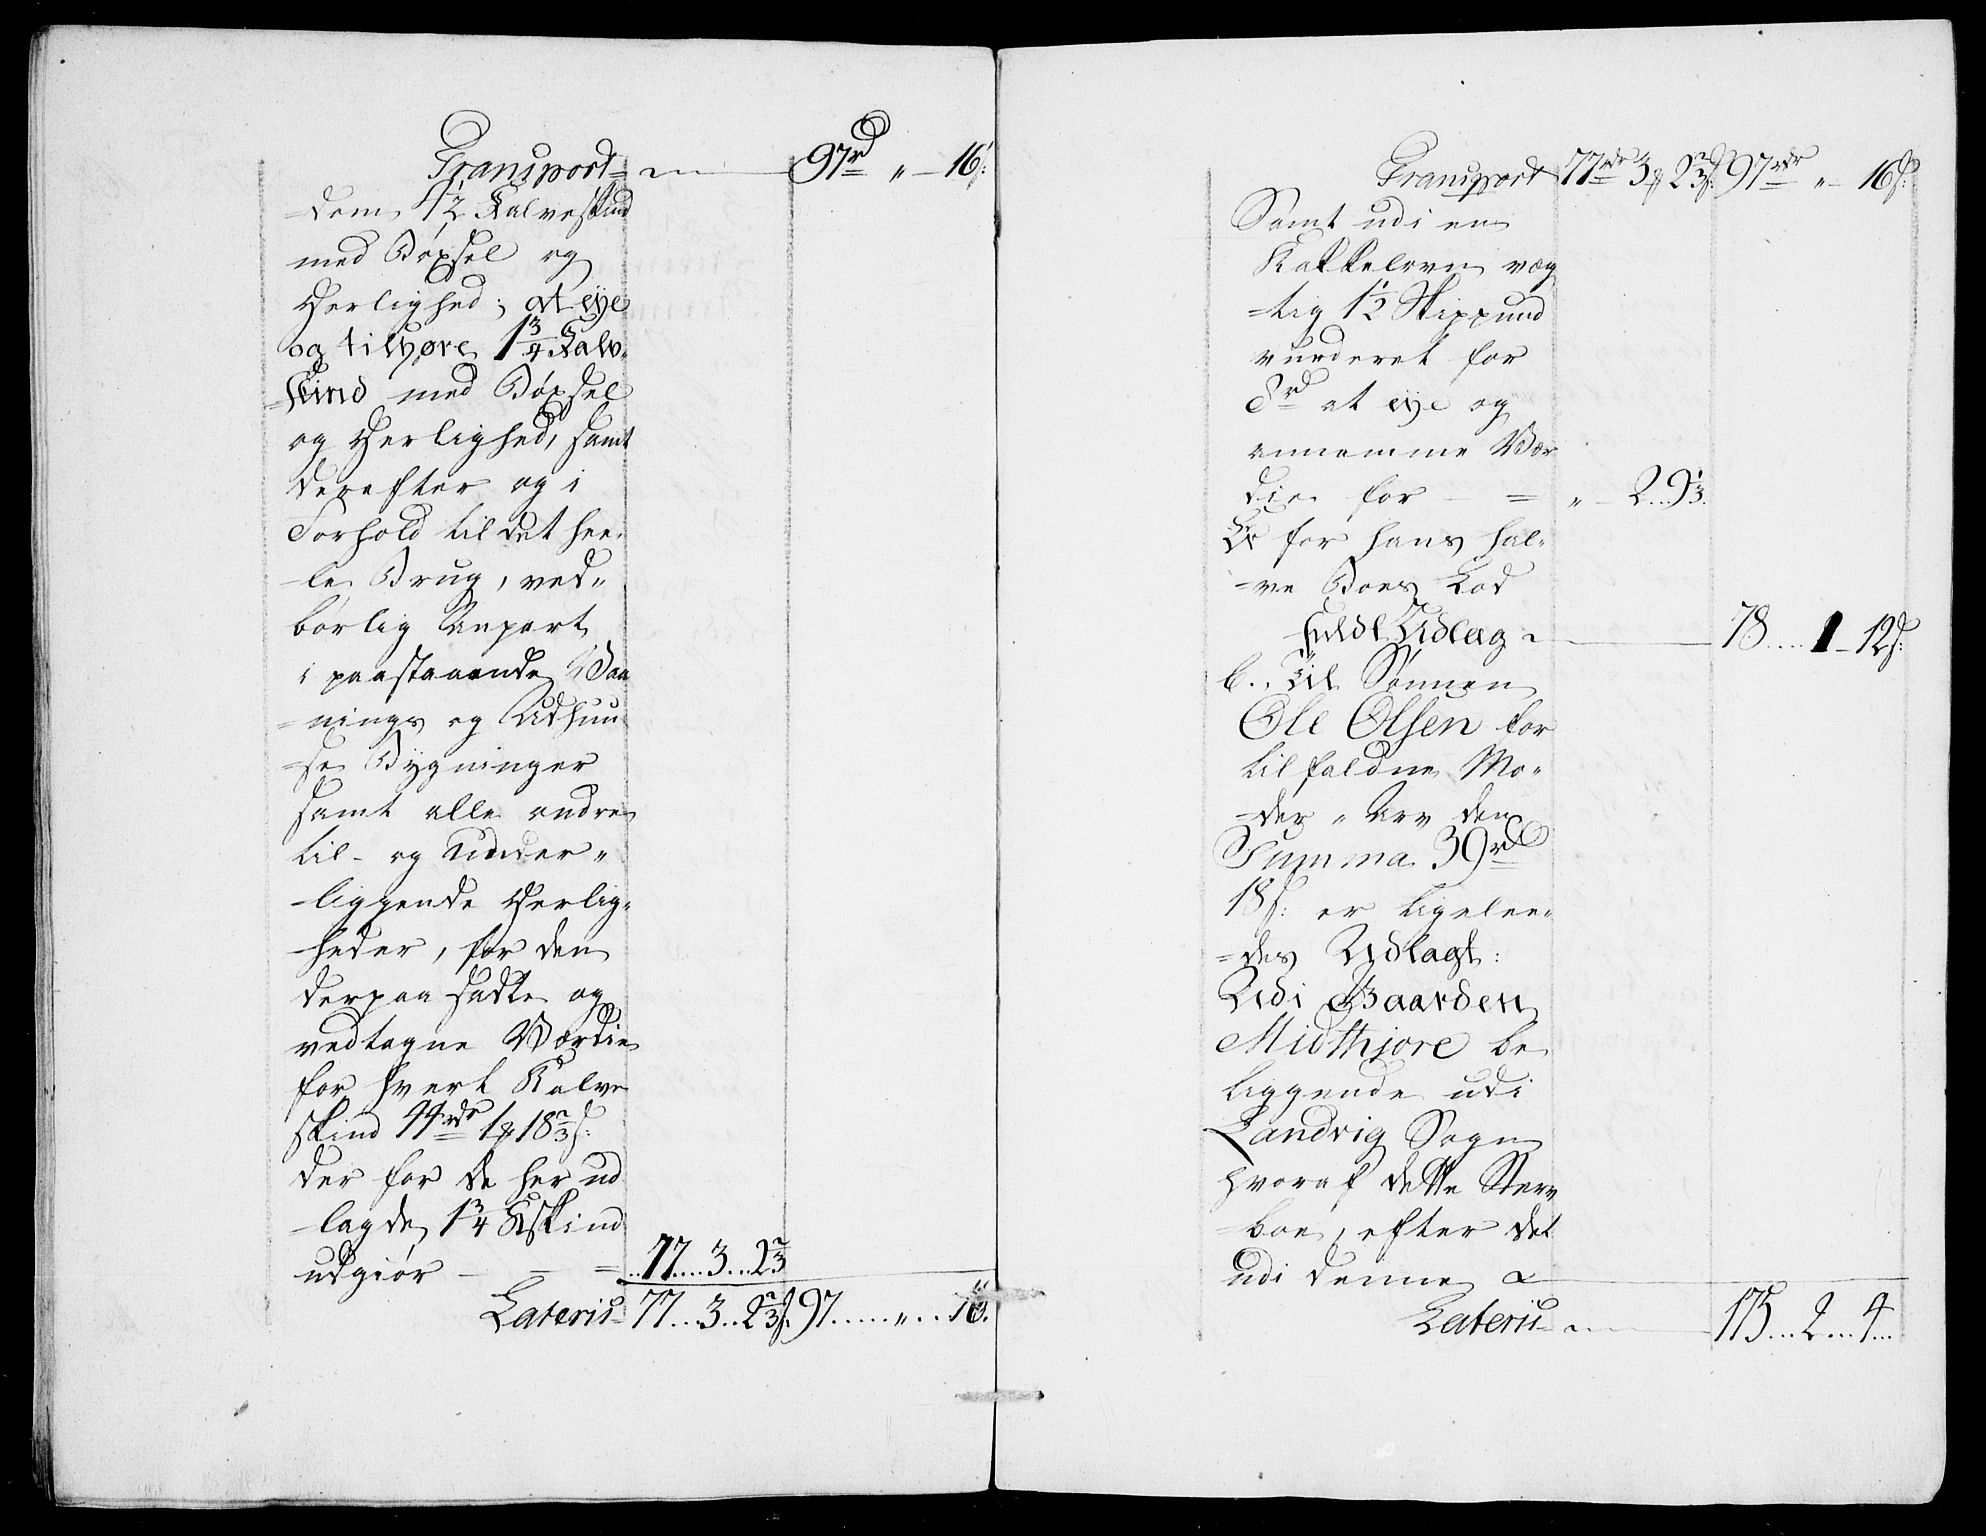 Transport = 97rd „ – 16s:
-dom, 4½ Kalveskind
med Bøxsel og
Herlighed; at eÿe
og tilhøre 1¾ Kalv-
-skind med Bøxsel
og Herlighed, samt
derefter og i
Forhold til det hee-
-le Brug, ved-
børlig Anpart
i paastaaende Vaa
-nings og Udhuu-
-se Bygninger
samt alle andre
til- og under-
-liggende Herlig-
-heder, for den
derpaa sadte og
vedtagne Værdie
for hvert Kalve
skind 44rdr 1# 18⅔s:
der for de her ud
-lagde 1¾ Kskind
udgiør – – = 77...3...2⅔
Lateris = 77...3...2⅔s. 97......„...16.
Transport 77rdr 3# 2⅔s: 97rdr „ – 16s:
Samt udi en
Kakkelovn væg
-tig 1½ Skippund
vurderet for
8rd at eÿe og
annamme Vær
die for – = „ – 2...9⅓.
Er for hans hal-
-ve Boes Lod
fuldt Udlæg 78....1–12s:
b., Til Sønnen
Ole Olsen for
tilfaldne Mo-
-der-Arv den
Summa 39rd
18s: er ligelee-
-des Udlagt:
Udi Gaarden
Midthiore be
liggende udi
Landvig Sogn
hvoraf dette Sterv
-boe, efter det
udi denne
Lateris = 175...2...4...